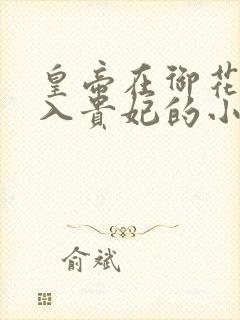 皇帝在御花
入贵妃的小
俞斌